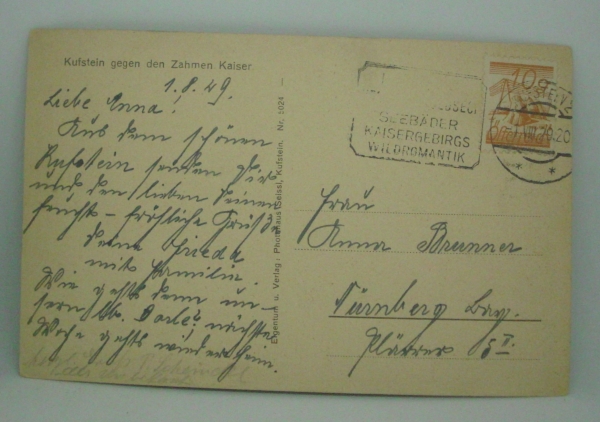 Kufstein gegen den Zahmen Kaiser
1.8.29.
Liebe Anna!
Aus dem schönen
Kufstein senden Dir
und den lieben Deinen
feucht-fröhliche Grüße
Deine Frieda
mit Familie.
Wie gehts denn un-
serm lb. Dorle? nächste
Woche gehts wieder heim.
Eigentum u. Verlag: Photohaus Geissl, Kufstein. Nr. 1024
SEEBÄDER
KAISERGEBIRGS
WILDROMANTIK
10
KUFSTEIN 2
1.VIII.29.20
Frau
Anna Brunner
Nürnberg Bay.
Plärrer 5 I.